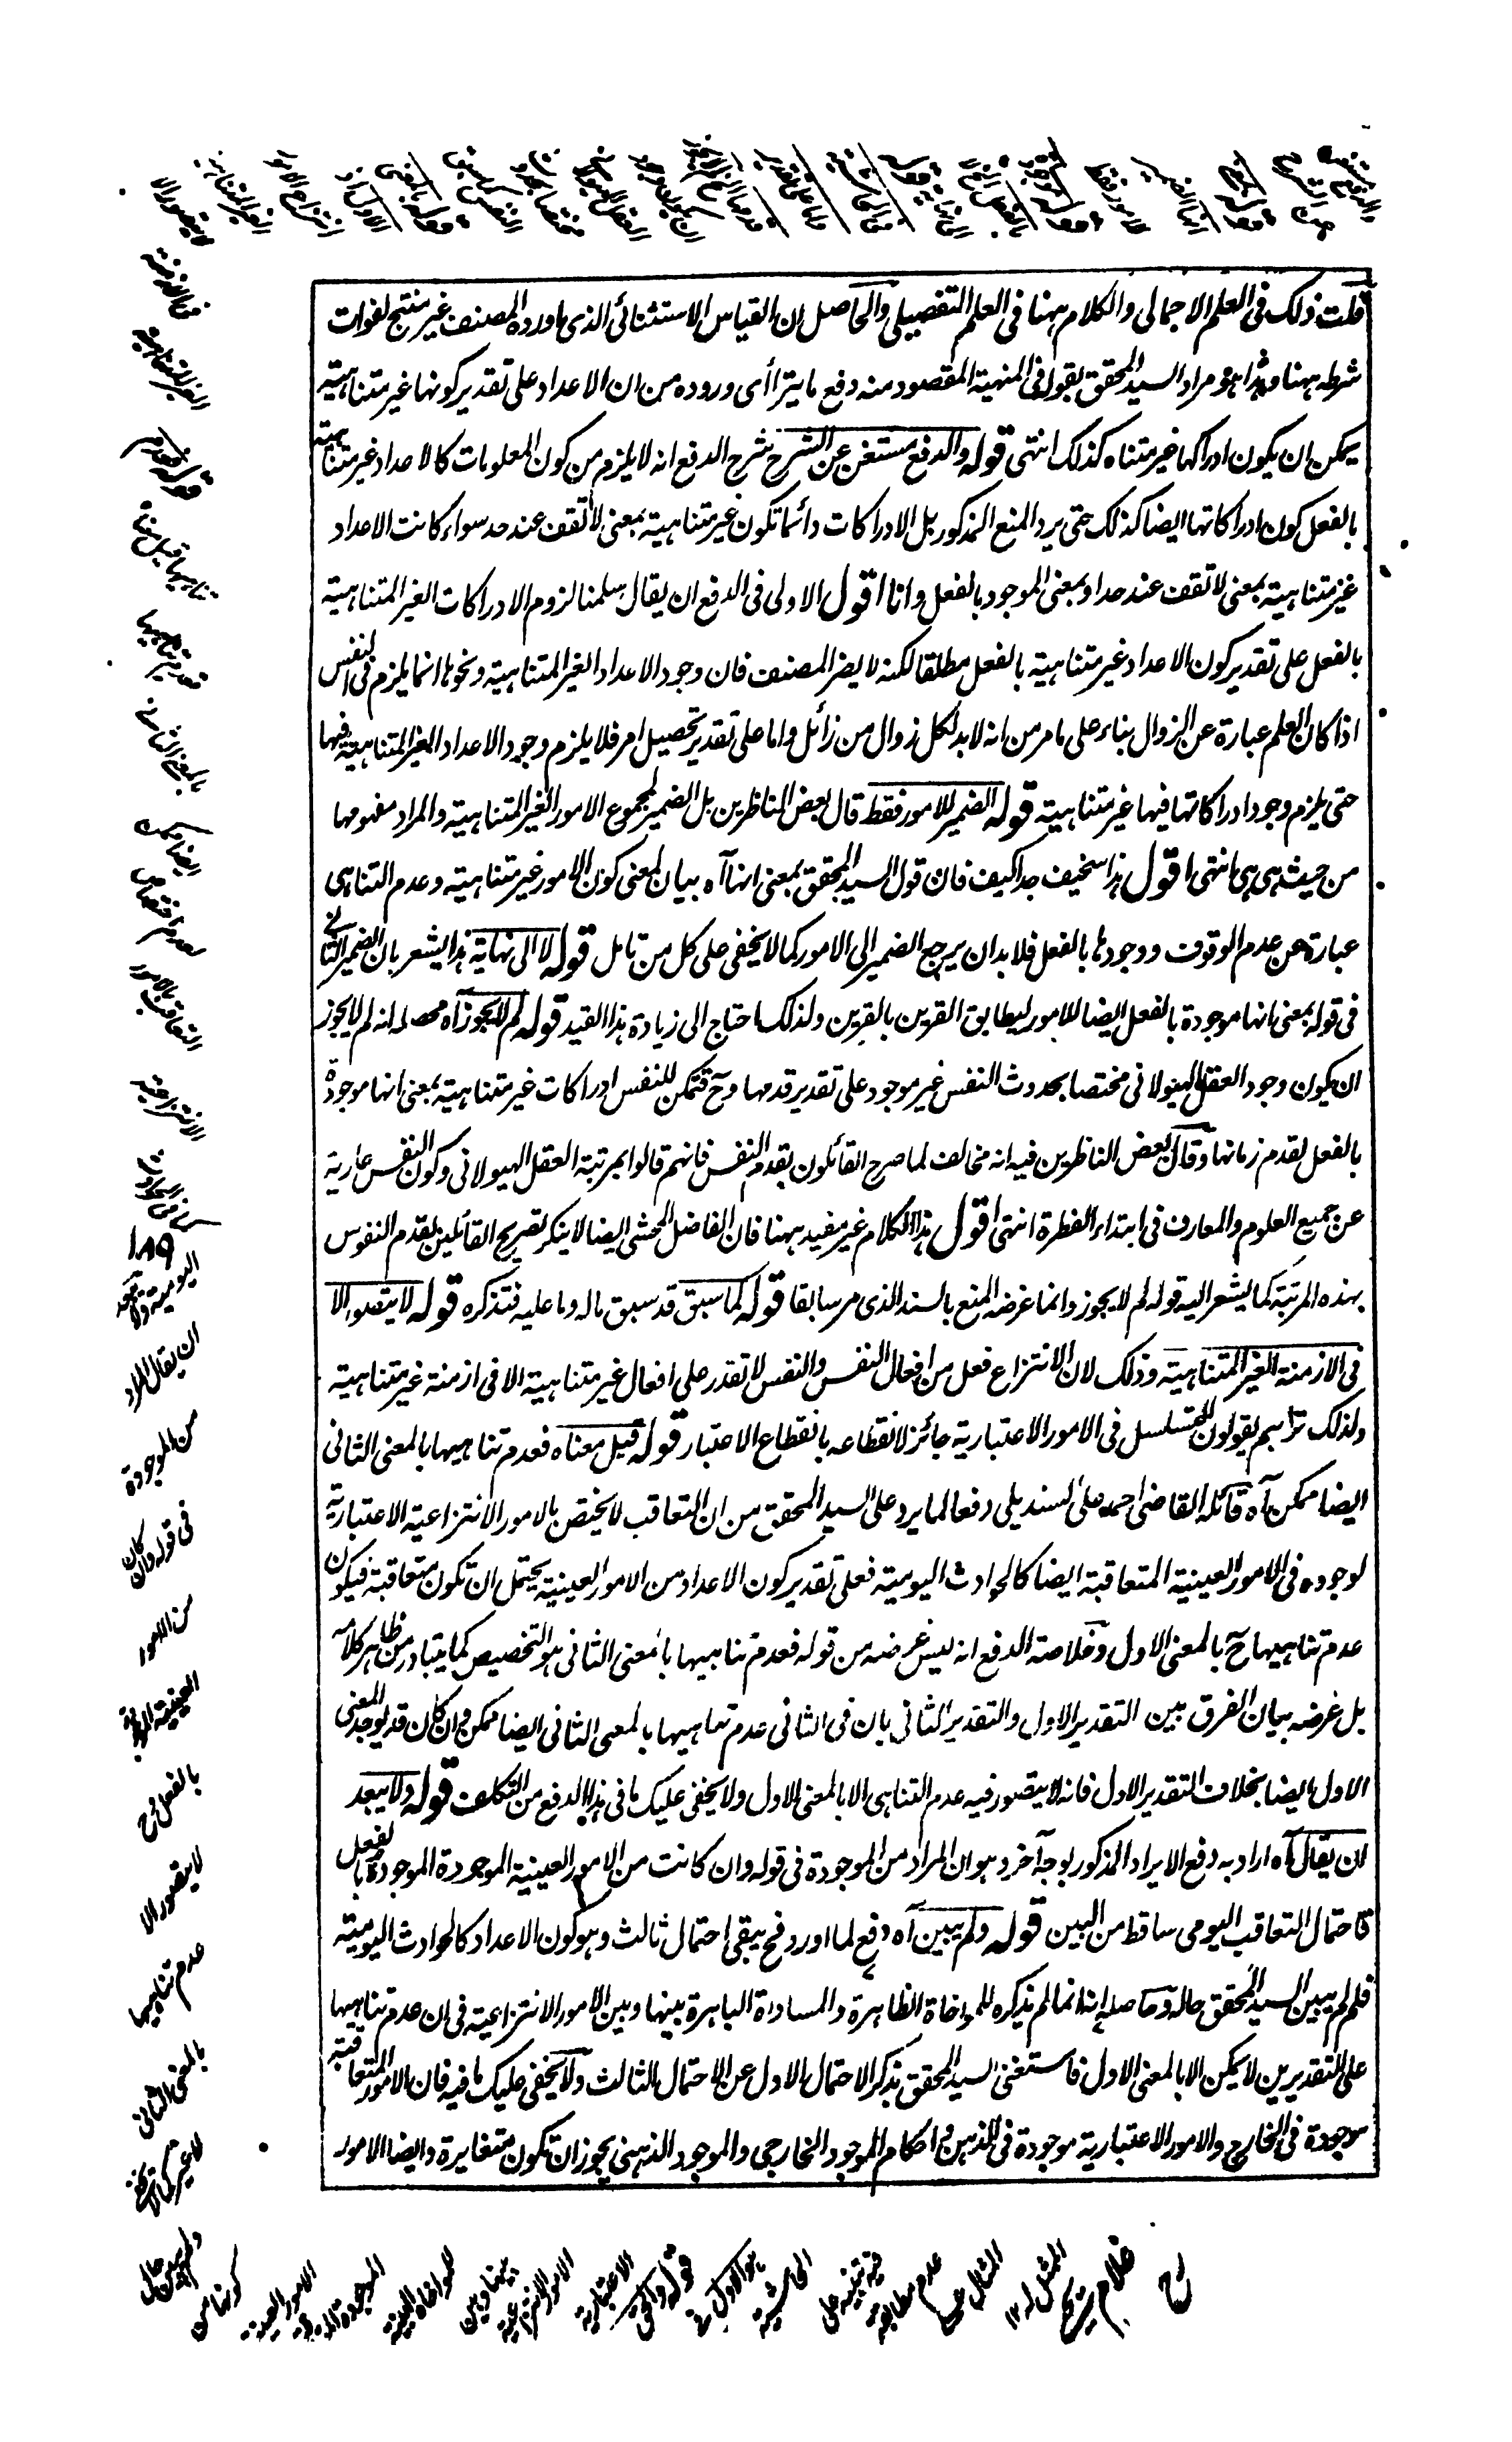 قلت ذلك فى العلم الاجمالى والكلام ههنا فى العلم التفصيلى والحاصل ان القياس الاستثنائى الذى اورده المصنف غير منتج لفوات
شرطه ههنا وهذا هو مراد السيد المحقق بقوله فى المنهية المقصود منه دفع ما يتراأى وروده من ان الاعداد على تقدير كونها غير متناهية
يمكن ان يكون ادراكها غير متناه كذلك انتهى قوله والدفع مستغن عن الشرح شرح الدفع انه لا يلزم من كون المعلومات كالاعداد غير متناهية
بالفعل كون ادراكاتها ايضا كذلك حتى يرد المنع المذكور بل الادراكات دائما تكون غير متناهية بمعنى لا تقف عند حد سواء كانت الاعداد
غير متناهية بمعنى لا تقف عند حد او بمعنى الموجود بالفعل وانا اقول الاولى فى الدفع ان يقال سلمنا لزوم الادراكات الغير المتناهية
بالفعل على تقدير كون الاعداد غير متناهية بالفعل مطلقا لكنه لا يضر المصنف فان وجود الاعداد الغير المتناهية ونحوها انما يلزم فى النفس
اذا كان العلم عبارة عن الزوال بناء على ما مر من انه لا بد لكل زوال من زائل واما على تقدير تحصيل امر فلا يلزم وجود الاعداد الغير المتناهية فيها
حتى يلزم وجود ادراكاتها فيها غير متناهية قوله الضمير للامور فقط قال بعض الناظرين بل الضمير لمجموع الامور الغير المتناهية والمراد مفهومها
من حيث هى هى انتهى اقول هذا سخيف جدا كيف فان قول السيد المحقق بمعنى انها آه بيان لمعنى كون الامور غير متناهية وعدم التناهى
عبارة عن عدم الوقوف ووجودها بالفعل فلا بد ان يرجع الضمير الى الامور كما لا يخفى على كل من تامل قوله لا الى نهاية هذا يشعر بان الضمير الثانى
فى قوله بمعنى انها موجودة بالفعل ايضا للامور ليطابق القرين بالقرين ولذلك احتاج الى زيادة هذا القيد قوله لم لا يجوز آه محصله انه لم لا يجوز
ان يكون وجود العقل الهيولانى مختصا بحدوث النفس غير موجود على تقدير قدمها وح فتمكن للنفس ادراكات غير متناهية بمعنى انها موجودة
بالفعل لقدم زمانها وقال بعض الناظرين فيه انه مخالف لما صرح القائلون بقدم النفس فانهم قالوا بمرتبة العقل الهيولانى وكون النفس عارية
عن جميع العلوم والمعارف فى ابتداء الفطرة انتهى اقول هذا الكلام غير مفيد ههنا فان الفاضل المحشى ايضا لا ينكر تصريح القائلين بقدم النفوس
بهذه المرتبة كما يشعر اليه قوله لم لا يجوز وانما غرضه المنع بالسند الذى مر سابقا قوله كما سبق قد سبق ماله وما عليه فتذكره قوله لا يتصور الا
فى الازمنة الغير المتناهية وذلك لان الانتزاع فعل من افعال النفس والنفس لا تقدر على افعال غير متناهية الا فى ازمنة غير متناهية
ولذلك تراهم يقولون التسلسل فى الامور الاعتبارية جائز لانقطاعه بانقطاع الاعتبار قوله قيل معناه فعدم تناهيها بالمعنى الثانى
ايضا ممكن آه قائله القاضى احمد على السنديلى دفعا لما يرد على السيد المحقق من ان التعاقب لا يختص بالامور الانتزاعية الاعتبارية
لوجوده فى الامور العينية المتعاقبة ايضا كالحوادث اليومية فعلى تقدير كون الاعداد من الامور العينية يحتمل ان تكون متعاقبة فيكون
عدم تناهيها ح بالمعنى الاول وخلاصة الدفع انه ليس غرضه من قوله فعدم تناهيها بالمعنى الثانى هو التخصيص كما يتبادر من ظاهر كلامه
بل غرضه بيان الفرق بين التقدير الاول والتقدير الثانى بان فى الثانى عدم تناهيها بالمعنى الثانى ايضا ممكن وان كان قد يوجد المعنى
الاول ايضا بخلاف التقدير الاول فانه لا يتصور فيه عدم التناهى الا بالمعنى الاول ولا يخفى عليك ما فى هذا الدفع من التكلف قوله ولا يبعد
ان يقال آه اراد به دفع الايراد المذكور بوجه آخر وهو ان المراد من الموجودة فى قوله وان كانت من الامور العينية الموجودة الموجودة بالفعل
فاحتمال التعاقب اليومى ساقط من البين قوله ولم يبين آه دفع لما اورد فح يبقى احتمال ثالث وهو كون الاعداد كالحوادث اليومية
فلم لم يبين السيد المحقق حاله وحاصله انه انما لم يذكره للمواخاة الظاهرة والمساواة الباهرة بينها وبين الامور الانتزاعية فى ان عدم تناهيها
على التقديرين لا يمكن الا بالمعنى الاول فاستغنى السيد المحقق بذكر الاحتمال الاول عن الاحتمال الثالث ولا يخفى عليك ما فيه فان الامور المتعاقبة
موجودة فى الخارج والامور الاعتبارية موجودة فى الذهن واحكام الموجود الخارجى والموجود الذهنى يجوز ان تكون متغايرة وايضا الامور
لا يتصور الا
فى الازمنة
الغير المتناهية
بالمعنى الثانى
ايضا ممكن
التعاقب بالامور
الانتزاعية
١٨٩
اليومية قوله ولا يبعد
ان يقال المراد
من الموجودة
فى قوله وان كان
من الامور
العينية الموجودة
بالفعل وح
لا يتصور الا
عدم تناهيها
بالمعنى الثانى